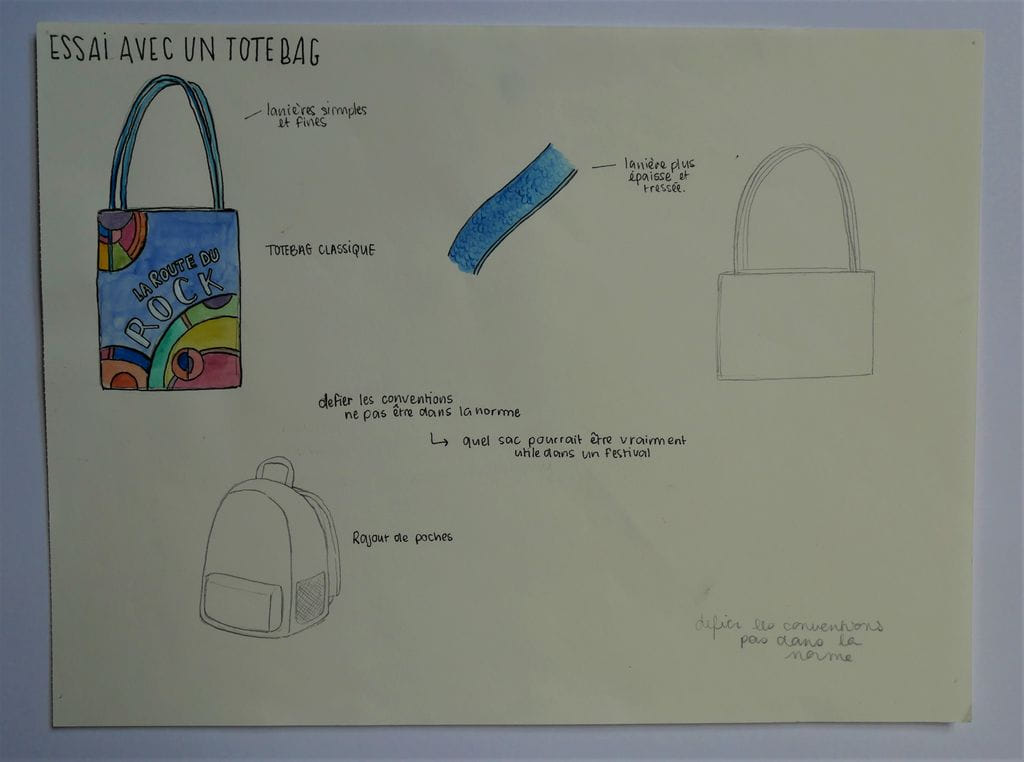 ESSAI AVEC UN TOTEBAG
lanières simples
et fines
lanière plus
épaisse et
tressée.
TOTEBAG CLASSIQUE
LA ROUTE DU
ROCK
defier les conventions
ne pas être dans la norme
↳ quel sac pourrait être vraiment
utile dans un festival
Rajout de poches
defier les conventions
pas dans la
norme